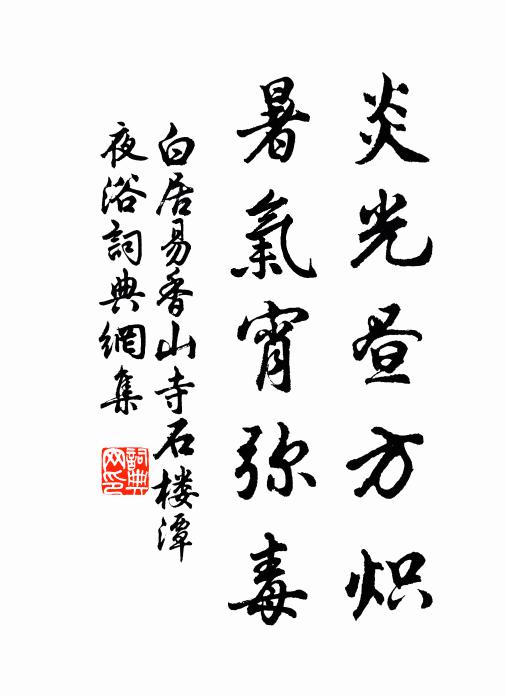 炎光昼方炽
暑氣宵弥毒
白居易香山寺石楼潭
夜浴詞典網集
詞典
网印